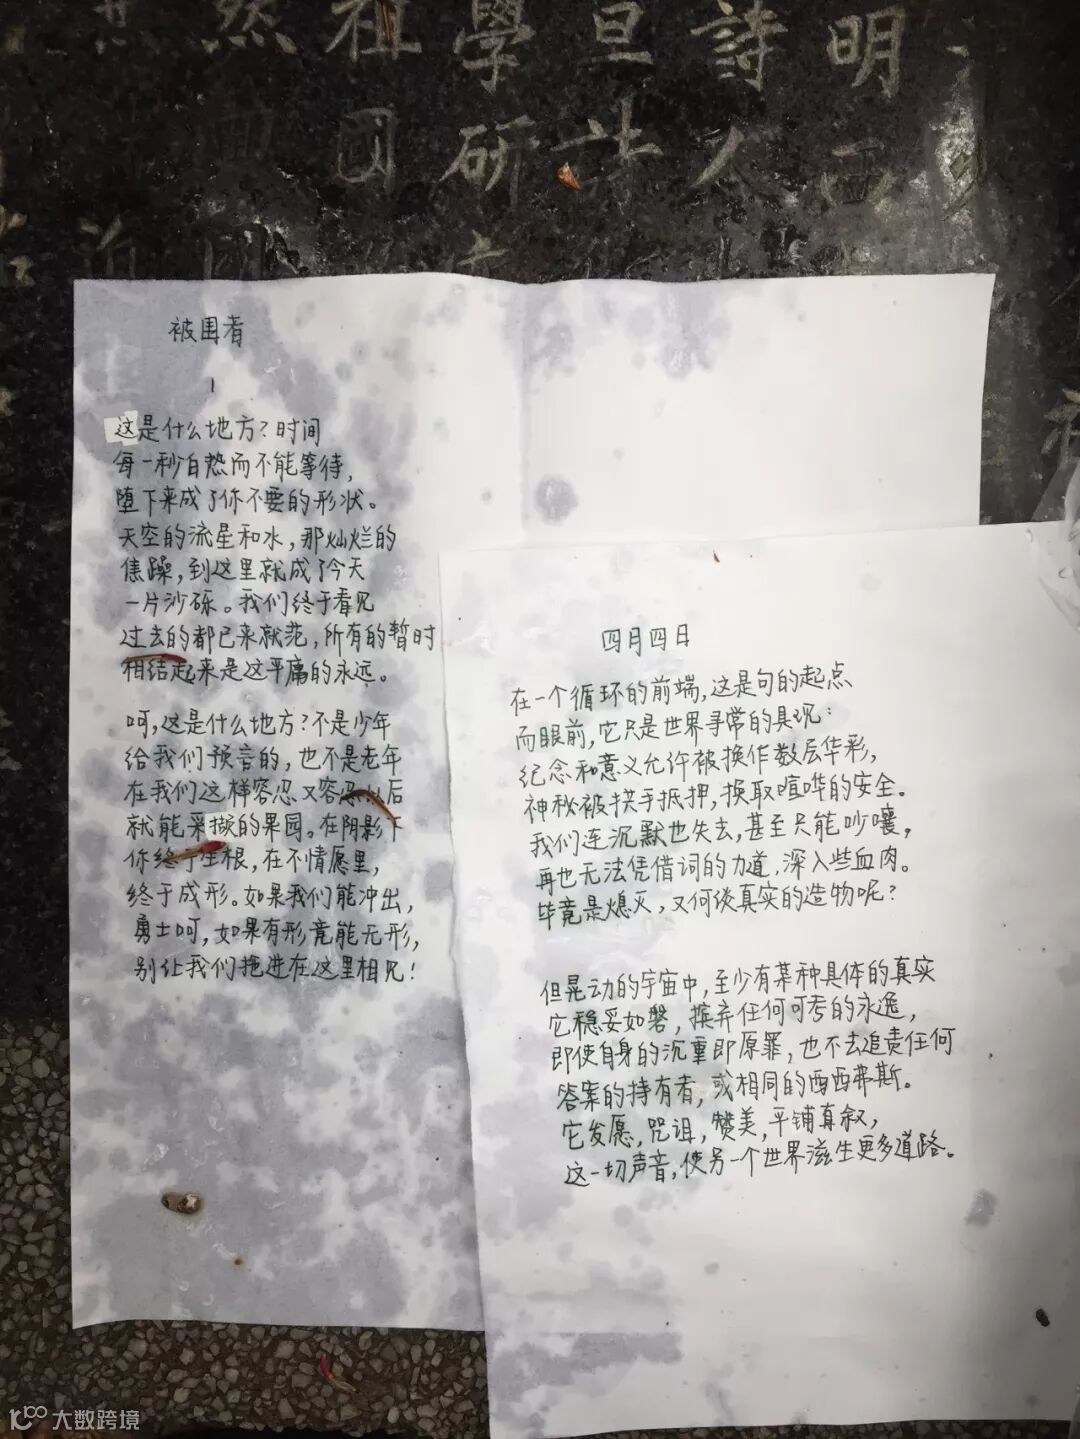 然 祖 學 旦 詩 明
國 研 社 人
被围者
1
这是什么地方？时间
每一秒白热而不能等待，
堕下来成了你不要的形状。
天空的流星和水，那灿烂的
焦躁，到这里就成了今天
一片沙砾。我们终于看见
过去的都已来就范，所有的暂时
相结起来是这平庸的永远。
呵，这是什么地方？不是少年
给我们预言的，也不是老年
在我们这样容忍又容忍以后
就能采撷的果园。在阴影下
你终于生根，在不情愿里，
终于成形。如果我们能冲出，
勇士呵，如果有形竟能无形，
别让我们拖进在这里相见！
四月四日
在一个循环的前端，这是句的起点
而眼前，它只是世界寻常的具现：
纪念和意义允许被换作数层华彩，
神秘被拱手抵押，换取喧哗的安全。
我们连沉默也失去，甚至只能吵嚷，
再也无法凭借词的力道，深入些血肉。
毕竟是熄灭，又何谈真实的造物呢？
但晃动的宇宙中，至少有某种具体的真实
它稳妥如磐，摈弃任何可考的永远，
即使自身的沉重即原罪，也不去追责任何
答案的持有者，或相同的西西弗斯。
它发愿，咒诅，赞美，平铺真叙，
这一切声音，使另一个世界滋生更多道路。
大数跨境